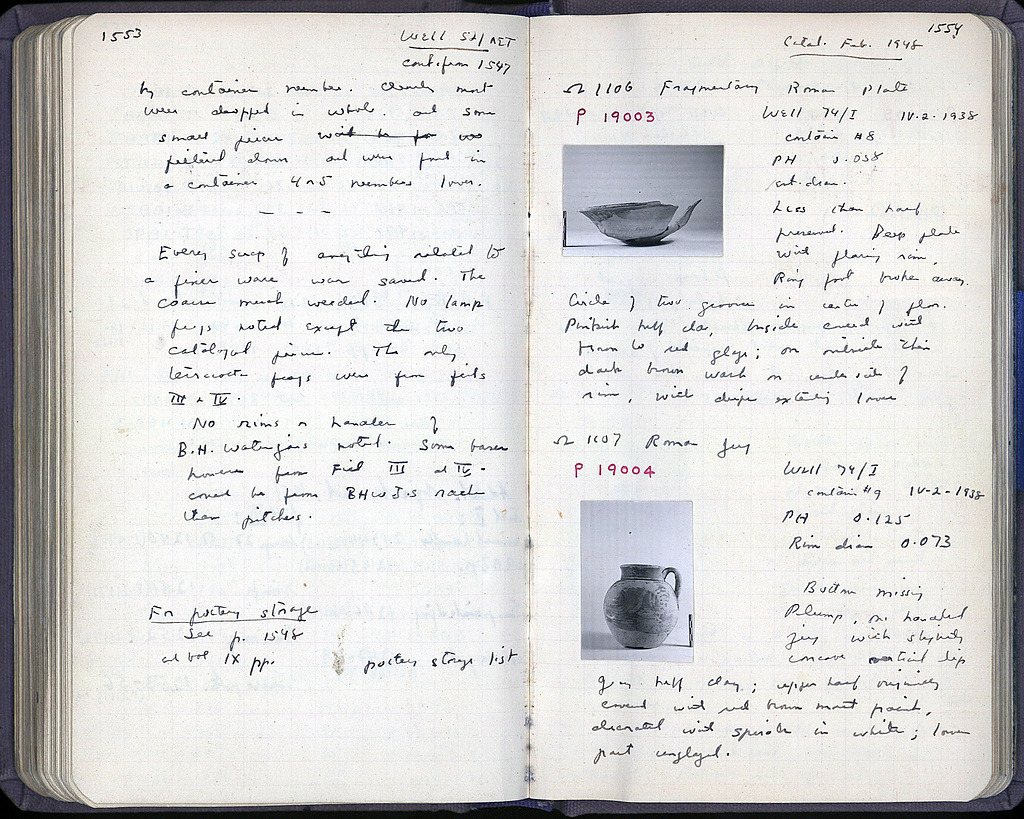 1553
Well 52/
cont. from 1547
by container number. Clearly most
were dropped in whole. and some
small pieces
down and were found in
a container 4 or 5 numbers lower.
- - -
Every scrap of anything related to
a finer ware was saved. The
coarse much weeded. No lamp
frags noted except the two
catalogued pieces. The only
terracotta frags were from fills
III & IV.
No rims or handles of
B.H. Waterjars noted. Some bases
however from Fill III and IV.
could be from BHWJ.s rather
than pitchers.
For pottery storage
See p. 1548
and vol IX pp. pottery storage list
1554
Catal. Feb. 1948
Ω 1106 Fragmentary Roman Plate
P 19003
Well 74/I IV-2-1938
contain #8
PH 0.058
est. diam.
Less than half
preserved. Deep plate
with flaring rim.
Ring foot broken away.
Circle of two grooves in center of floor.
Pinkish buff clay, inside covered with
brown to red glaze; on outside thin
dark brown wash on underside of
rim, with drips extending lower
Ω 1107 Roman Jug
P 19004
Well 74/I
contain #9 IV-2-1938
PH 0.125
Rim diam 0.073
Bottom missing
Plump, one handled
jug with slightly
concave vertical lip
Grey buff clay; upper half originally
covered with red brown matt paint,
decorated with spirals in white; lower
part unglazed.